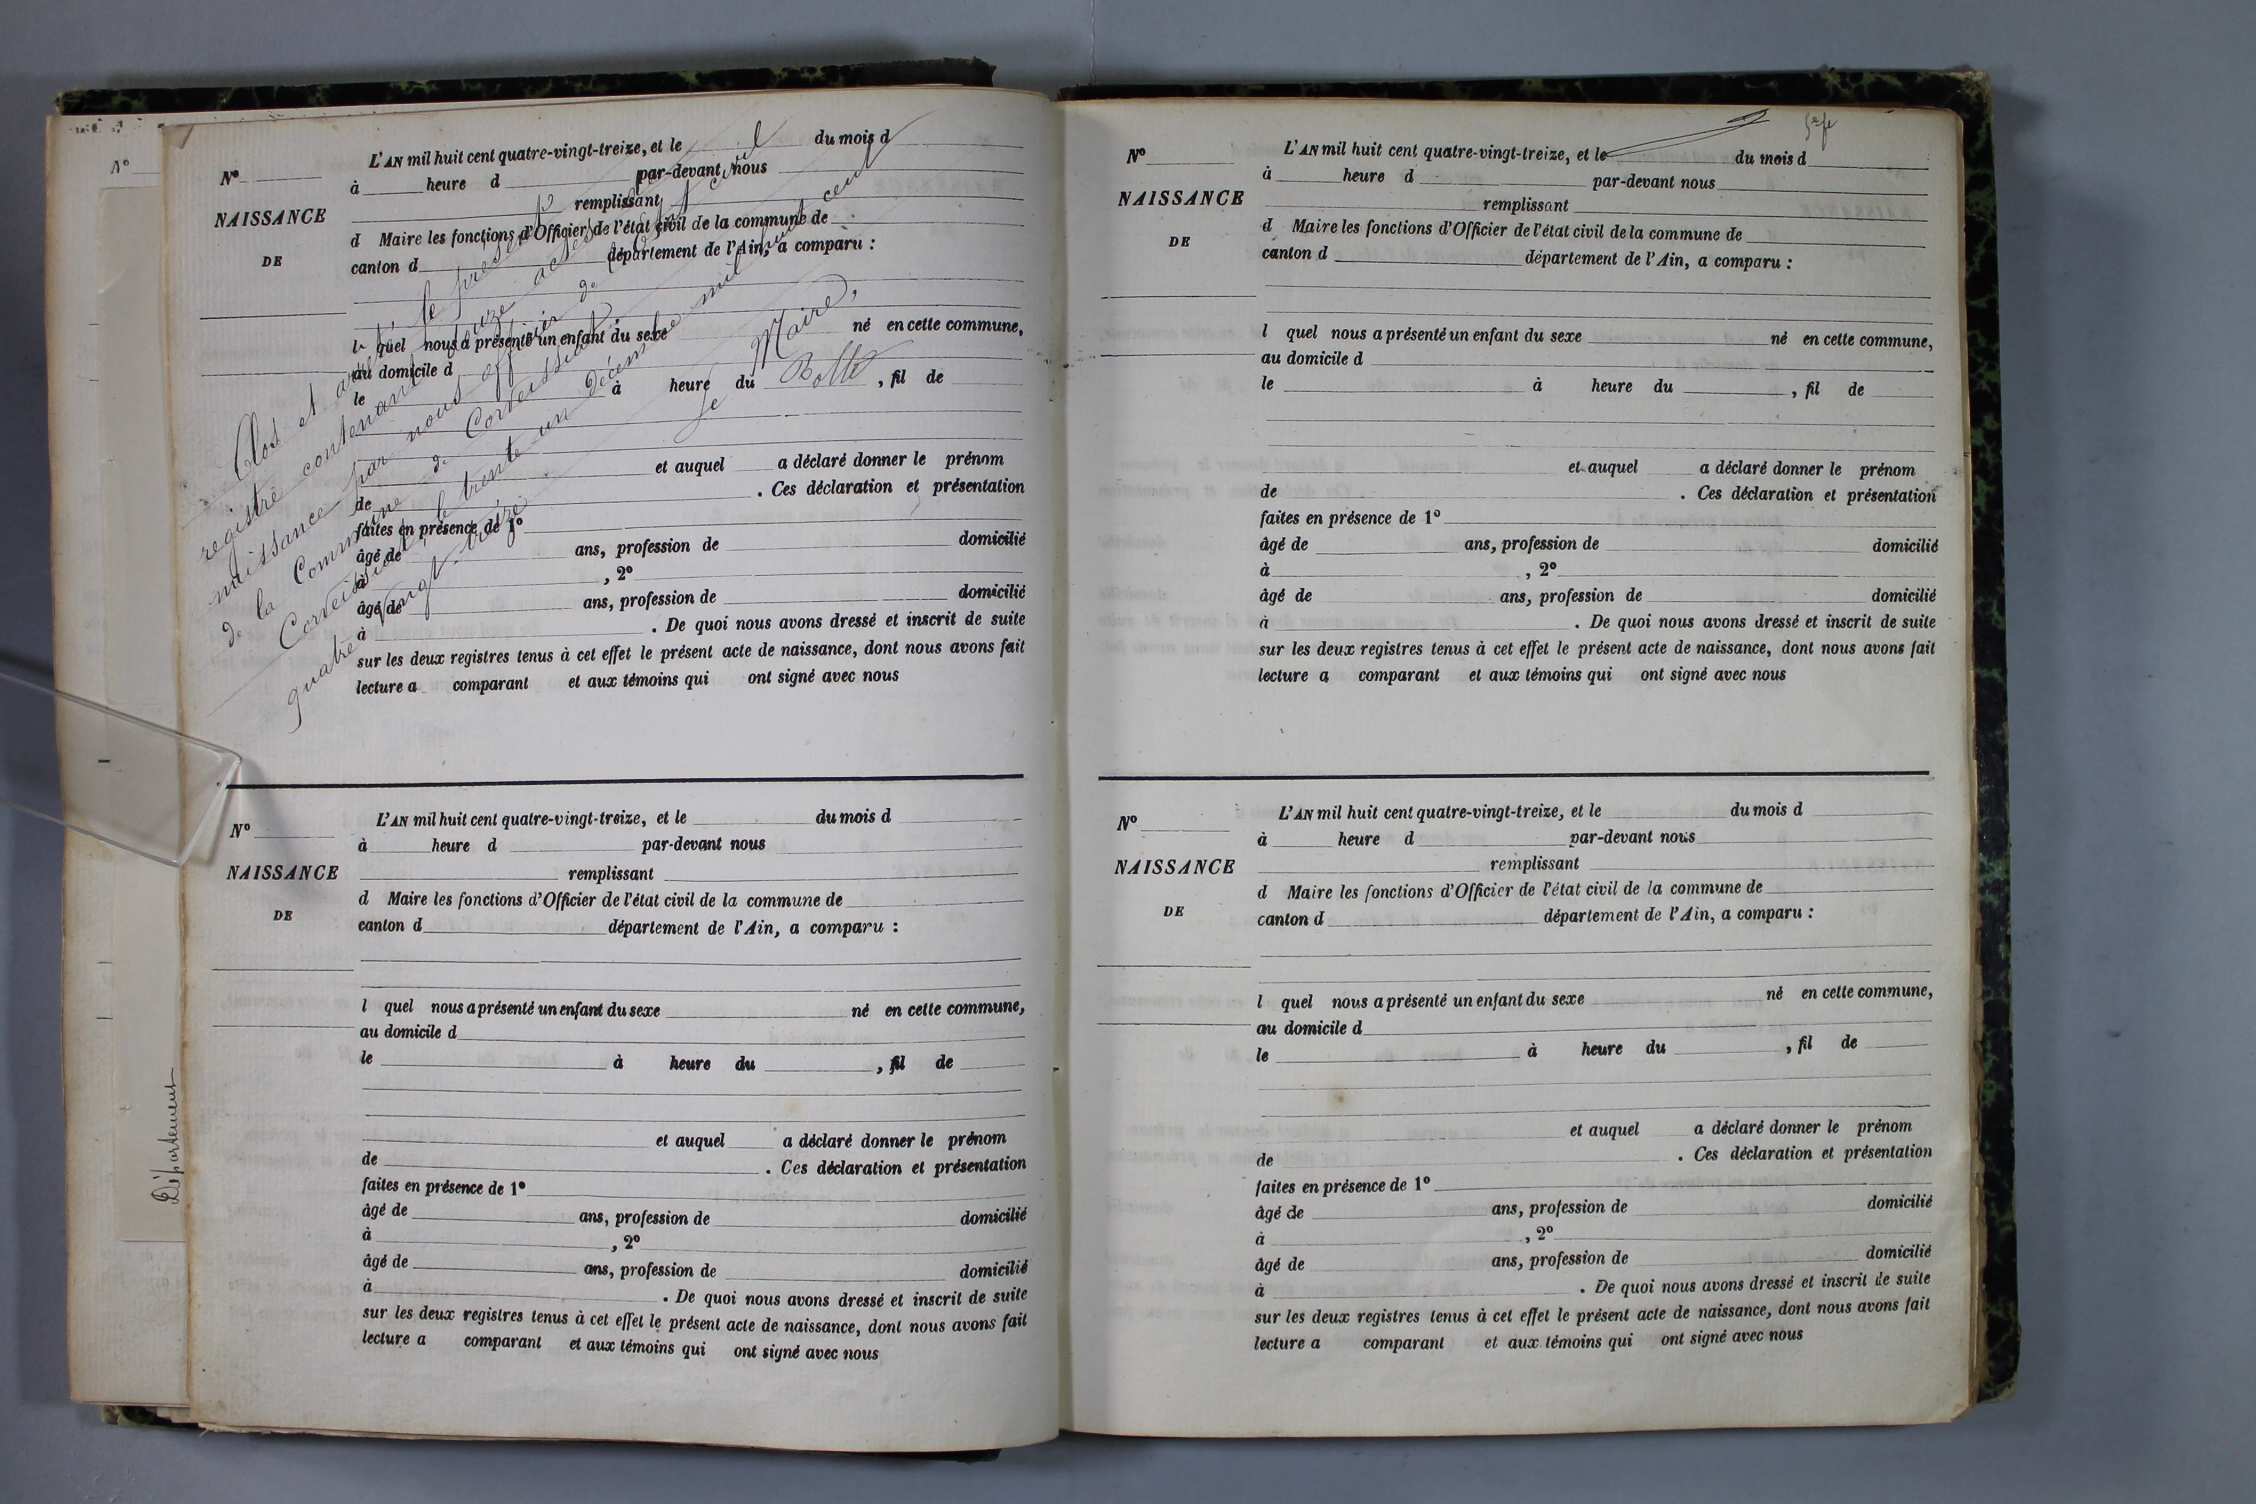 N°
Département
N°
NAISSANCE
DE
L'AN mil huit cent quatre-vingt-treize, et le du mois d
à heure d par-devant nous
remplissant
d Maire les fonctions d'Officier de l'état civil de la commune de
canton d département de l'Ain, a comparu :
l quel nous a présenté un enfant du sexe né en cette commune,
au domicile d
le à heure du , fil de
et auquel a déclaré donner le prénom
de . Ces déclaration et présentation
faites en présence de 1°
âgé de ans, profession de domicilié
à , 2°
âgé de ans, profession de domicilié
à . De quoi nous avons dressé et inscrit de suite
sur les deux registres tenus à cet effet le présent acte de naissance, dont nous avons fait
lecture a comparant et aux témoins qui ont signé avec nous
Clos et arrêté le présent
registre contenant douze actes de
naissance par nous officier de l'état civil
de la Commune de Corveissiat
Corveissiat, le trente un décembre mil huit cent
quatre vingt-treize
Le Maire,
N°
NAISSANCE
DE
L'AN mil huit cent quatre-vingt-treize, et le du mois d
à heure d par-devant nous
remplissant
d Maire les fonctions d'Officier de l'état civil de la commune de
canton d département de l'Ain, a comparu :
l quel nous a présenté un enfant du sexe né en cette commune,
au domicile d
le à heure du , fil de
et auquel a déclaré donner le prénom
de . Ces déclaration et présentation
faites en présence de 1°
âgé de ans, profession de domicilié
à , 2°
âgé de ans, profession de domicilié
à . De quoi nous avons dressé et inscrit de suite
sur les deux registres tenus à cet effet le présent acte de naissance, dont nous avons fait
lecture a comparant et aux témoins qui ont signé avec nous
N°
NAISSANCE
DE
L'AN mil huit cent quatre-vingt-treize, et le du mois d
à heure d par-devant nous
remplissant
d Maire les fonctions d'Officier de l'état civil de la commune de
canton d département de l'Ain, a comparu :
l quel nous a présenté un enfant du sexe né en cette commune,
au domicile d
le à heure du , fil de
et auquel a déclaré donner le prénom
de . Ces déclaration et présentation
faites en présence de 1°
âgé de ans, profession de domicilié
à , 2°
âgé de ans, profession de domicilié
à . De quoi nous avons dressé et inscrit de suite
sur les deux registres tenus à cet effet le présent acte de naissance, dont nous avons fait
lecture a comparant et aux témoins qui ont signé avec nous
N°
NAISSANCE
DE
L'AN mil huit cent quatre-vingt-treize, et le du mois d
à heure d par-devant nous
remplissant
d Maire les fonctions d'Officier de l'état civil de la commune de
canton d département de l'Ain, a comparu :
l quel nous a présenté un enfant du sexe né en cette commune,
au domicile d
le à heure du , fil de
et auquel a déclaré donner le prénom
de . Ces déclaration et présentation
faites en présence de 1°
âgé de ans, profession de domicilié
à , 2°
âgé de ans, profession de domicilié
à . De quoi nous avons dressé et inscrit de suite
sur les deux registres tenus à cet effet le présent acte de naissance, dont nous avons fait
lecture a comparant et aux témoins qui ont signé avec nous